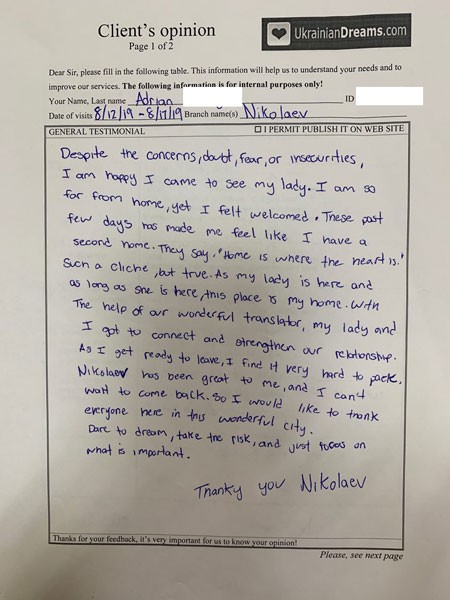 Client's opinion
Page 1 of 2
UkrainianDreams.com
Dear Sir, please fill in the following table. This information will help us to understand your needs and to
improve our services. The following information is for internal purposes only!
Your Name, Last name Adrian ID
Date of visits 8/12/19 - 8/17/19 Branch name(s) Nikolaev
GENERAL TESTIMONIAL ☐ I PERMIT PUBLISH IT ON WEB SITE
Despite the concerns, doubt, fear, or insecurities,
I am happy I came to see my lady. I am so
far from home, yet I felt welcomed. These past
few days has made me feel like I have a
second home. They say, "Home is where the heart is."
Such a cliche, but true. As my lady is here and
as long as she is here, this place is my home. With
The help of our wonderful translator, my lady and
I got to connect and strengthen our relationship.
As I get ready to leave, I find it very hard to pack.
Nikolaev has been great to me, and I can't
wait to come back. So I would like to thank
everyone here in this wonderful city.
Dare to dream, take the risk, and just focus on
what is important.
Thanky you Nikolaev
Thanks for your feedback, it's very important for us to know your opinion!
Please, see next page